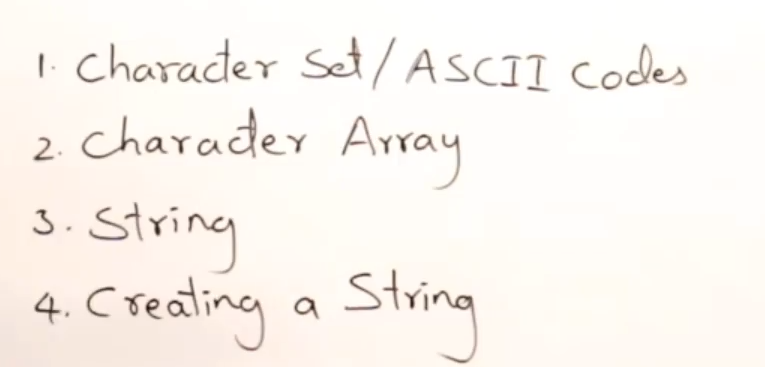 1. Character Set/ASCII Codes
2. Character Array
3. String
4. Creating a String